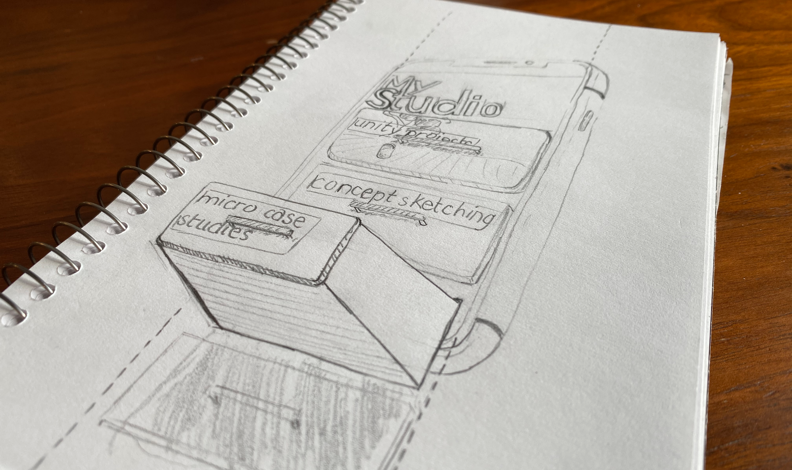 My
Studio
unity projects
concept sketching
micro case
studies